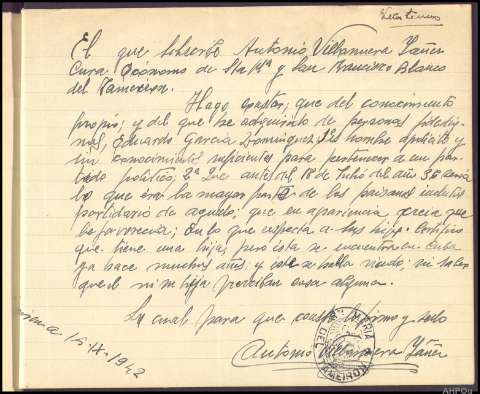 El que subscribe Antonio Villanueva Yáñez
Cura Ecónomo de Sta Mª y San Francisco Blanco
del Tameirón.
Hago constar; que del conocimiento
propio; y del que he adquirido de personas fidedig-
nas, Eduardo García Domínguez,
un conocimiento suficiente para pertenecer a un par-
tido político; 2º Que antes del 18 de Julio del año 36 era
lo que era la mayor parte de los paisanos incultos
partidario de aquello; que en apariencia creía que
le favorecía; En lo que respecta a sus hijos: Certifico
que tiene una hija; pero esta se encuentra en Cuba
ya hace muchos años y se halla viuda; ni sabe
que él ni su hija perciban cosa alguna.
Lo cual para que conste lo firmo y sello
Antonio Villanueva Yáñez
15-IX-1942
MARIA
DEL
TAMEIRON
AHPOu